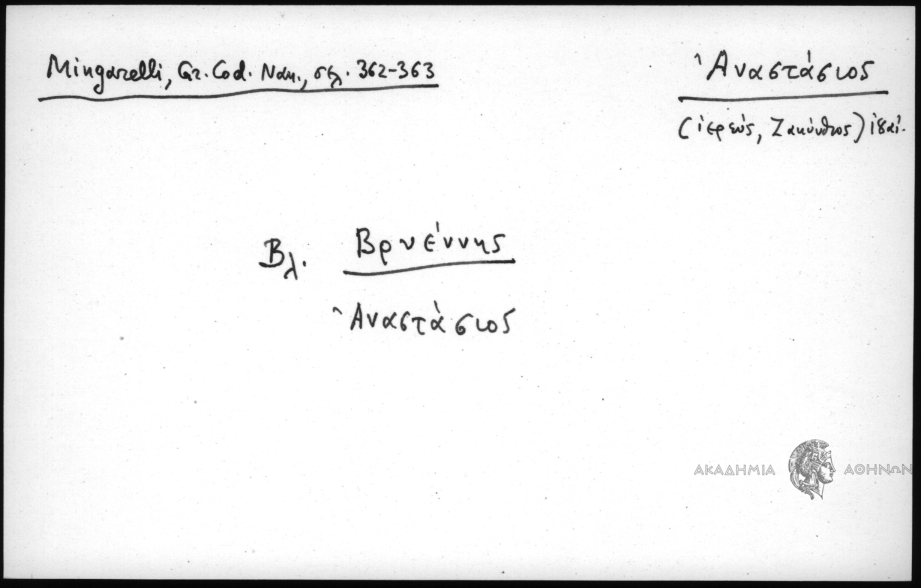 Mingarelli, Gr. Cod. Nan., σελ. 362-363
Ἀναστάσιος
(ἱερεύς, Ζακύνθιος) ιδ' αἰ.
Βλ. Βρυέννης
Ἀναστάσιος
ΑΚΑΔΗΜΙΑ ΑΘΗΝΩΝ